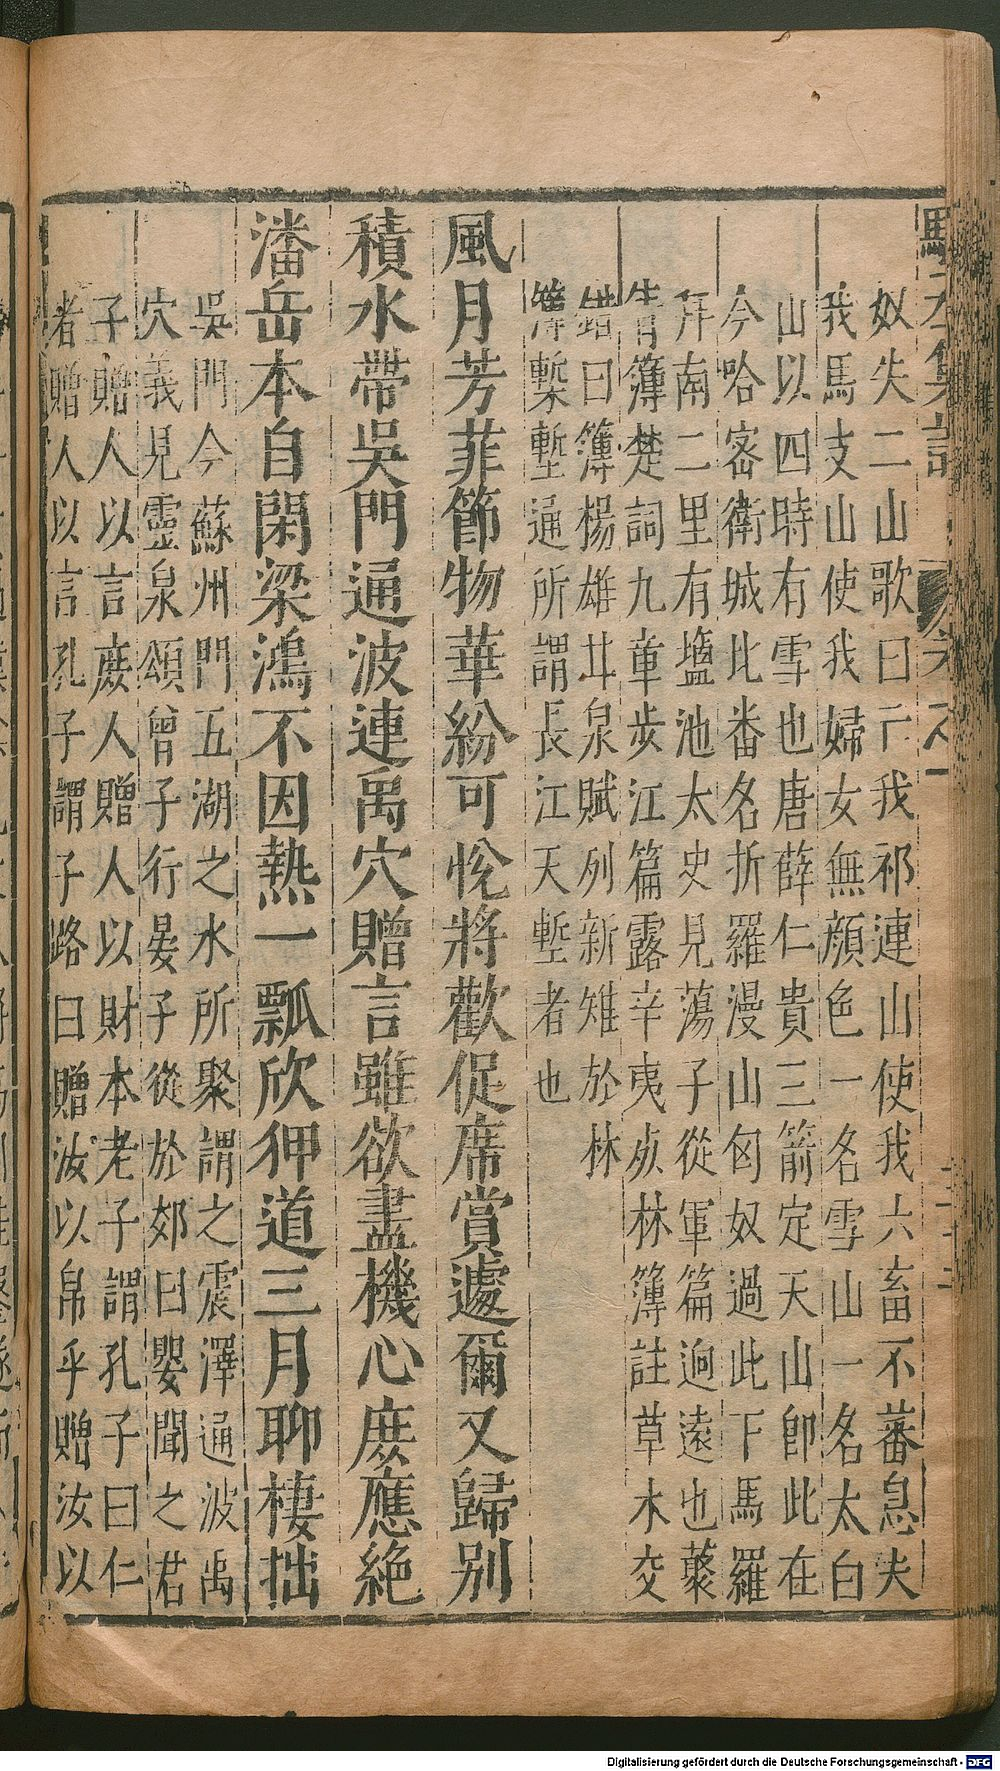 奴失二山歌曰亡我祁連山使我六畜不蕃息失
我焉支山使我婦女無顏色一名雪山一名太白
山以四時有雪也唐薛仁貴三箭定天山卽此在
今哈密衛城北番名折羅漫山匈奴過此下馬羅
拜南二里有塩池太史見蕩子從軍篇逈遠也藂
青簿楚詞九章步江篇露辛夷死林林簿註草木交
錯曰簿楊雄甘泉賦列新雉於林
簿槧塹通所謂長江天塹者也
風月芳菲節物華紛可悅將歡促席賞遽爾又歸別
積水帶吳門通波連禹穴贈言雖欲盡機心庶應絶
潘岳本自閑梁鴻不因熱一瓢欣狎道三月聊棲拙
吳門今蘇州門五湖之水所聚謂之震澤通波禹
穴義見靈泉頌曾子行晏子從於郊曰嬰聞之君
子贈人以言庶人贈人以財本老子謂孔子曰仁
者贈人以言孔子謂子路曰贈汝以帛乎贈汝以
Digitalisierung gefördert durch die Deutsche Forschungsgemeinschaft - DFG